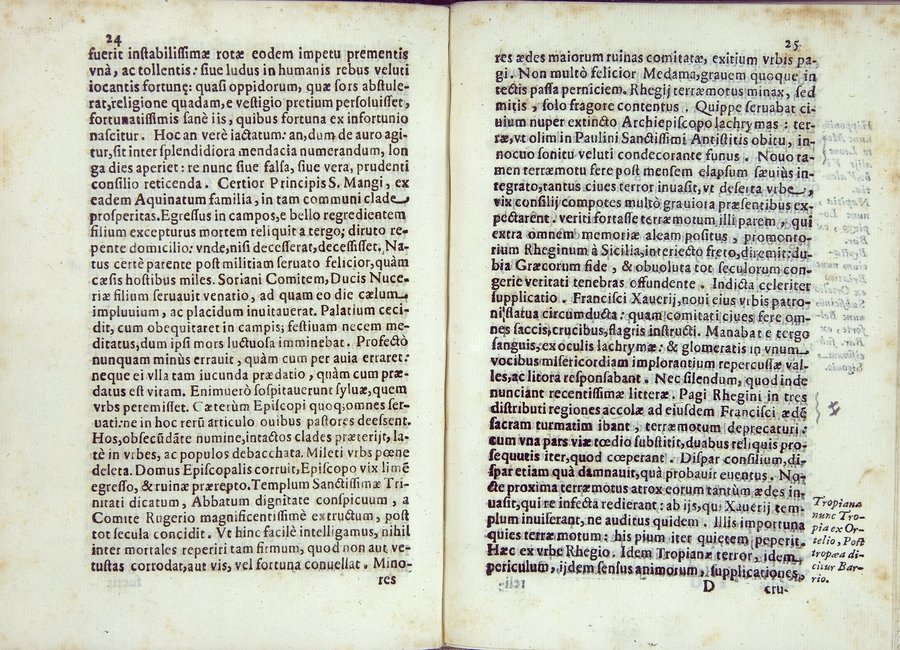 24
fuerit instabilissimæ rotæ eodem impetu prementis
vnà, ac tollentis: siue ludus in humanis rebus veluti
iocantis fortunę: quasi oppidorum, quæ sors abstule-
rat, religione quadam, e vestigio pretium persoluisset,
fortunatissimis sanè iis, quibus fortuna ex infortunio
nascitur. Hoc an verè iactatum: an, dum de auro agi-
tur, sit inter splendidiora mendacia numerandum, lon
ga dies aperiet: re nunc siue falsa, siue vera, prudenti
consilio reticenda. Certior Principis S. Mangi, ex
eadem Aquinatum familia, in tam communi clade
prosperitas. Egressus in campos, e bello regredientem
filium excepturus mortem reliquit a tergo; diruto re-
pente domicilio: vnde, nisi decesserat, decessisset. Na-
tus certè parente post militiam seruato felicior, quàm
cæsis hostibus miles. Soriani Comitem, Ducis Nuce-
riæ filium seruauit venatio, ad quam eo die cælum
impluuium, ac placidum inuitauerat. Palatium ceci-
dit, cum obequitaret in campis; festiuam necem me-
ditatus, dum ipsi mors luctuosa imminebat. Profectò
nunquam minùs errauit, quàm cum per auia erraret:
neque ei vlla tam iucunda prædatio, quàm cum præ-
datus est vitam. Enimuerò sospitauerunt syluæ, quem
vrbs peremisset. Cæterùm Episcopi quoq; omnes ser-
uati: ne in hoc rerū articulo ouibus pastores deessent.
Hos, obsecūdāte numine, intactos clades præterijt, la-
tè in vrbes, ac populos debacchata. Mileti vrbs pœne
deleta. Domus Episcopalis corruit, Episcopo vix limē
egresso, & ruinæ prærepto. Templum Sanctissimæ Tri-
nitati dicatum, Abbatum dignitate conspicuum, a
Comite Rugerio magnificentissimè extructum, post
tot secula concidit. Vt hinc facilè intelligamus, nihil
inter mortales reperiri tam firmum, quod non aut ve-
tustas corrodat, aut vis, vel fortuna conuellat. Mino-
res
25
res ædes maiorum ruinas comitatæ, exitium vrbis pa-
gi. Non multò felicior Medama, grauem quoque in
tectis passa perniciem. Rhegij terræmotus minax, sed
mitis, solo fragore contentus. Quippe seruabat ci-
uium nuper extincto Archiepiscopo lachrymas: ter-
ræ, vt olim in Paulini Sanctissimi Antistitis obitu, in-
nocuo sonitu veluti condecorante funus. Nouo ta-
men terræmotu fere post mensem elapsum sæuiùs in-
tegrato, tantus ciues terror inuasit, vt deserta vrbe,
vix consilij compotes multò grauiora præsentibus ex-
pectarent. veriti fortasse terræmotum illi parem, qui
extra omnem memoriæ aleam positus, promonto-
rium Rheginum à Sicilia, interiecto freto, diremit: du-
bia Græcorum fide, & obuoluta tot seculorum con-
gerie veritati tenebras offundente. Indicta celeriter
supplicatio. Francisci Xauerij, noui eius vrbis patro-
ni, statua circumducta: quam comitati ciues fere om-
nes saccis, crucibus, flagris instructi. Manabat e tergo
sanguis, ex oculis lachrymæ: & glomeratis in vnum
vocibus misericordiam implorantium repercussæ val-
les, ac litora responsabant. Nec silendum, quod inde
nunciant recentissimæ litteræ. Pagi Rhegini in tres
distributi regiones accolæ ad eiusdem Francisci ædē
sacram turmatim ibant, terræmotum deprecaturi:
cum vna pars viæ tœdio substitit, duabus reliquis pro-
sequutis iter, quod cœperant. Dispar consilium, di-
spar etiam quà damnauit, quà probauit euentus. No-
cte proxima terræmotus atrox eorum tantùm ædes in-
uasit, qui re infecta redierant: ab ijs, qui Xauerij tem-
plum inuiserant, ne auditus quidem. Illis importuna
quies terræmotum: his pium iter quietem peperit.
Hæc ex vrbe Rhegio. Idem Tropianæ terror, idem
periculum, ijdem sensus animorum, supplicationes,
D
cru-
Tropiana
nunc Tro-
pia ex Or-
telio, Post
tropæa di-
citur Bar-
rio.